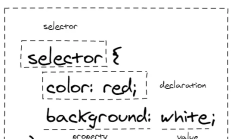 selector
selector {
color: red; declaration
background: white;
} property value